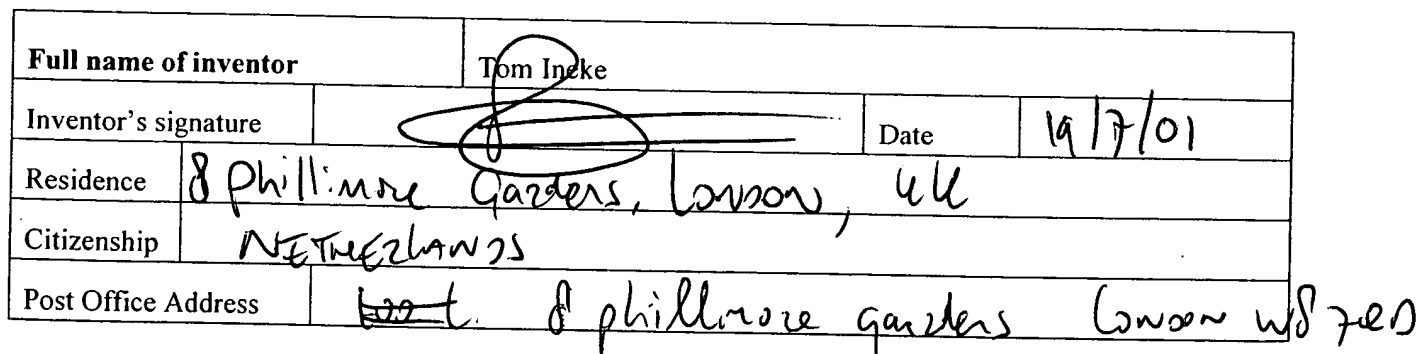 Full name of inventor Tom Ineke
Inventor's signature Date 19/7/01
Residence 8 Phillimore Gardens, London, UK
Citizenship NETHERLANDS
Post Office Address 8 phillimore gardens London W8